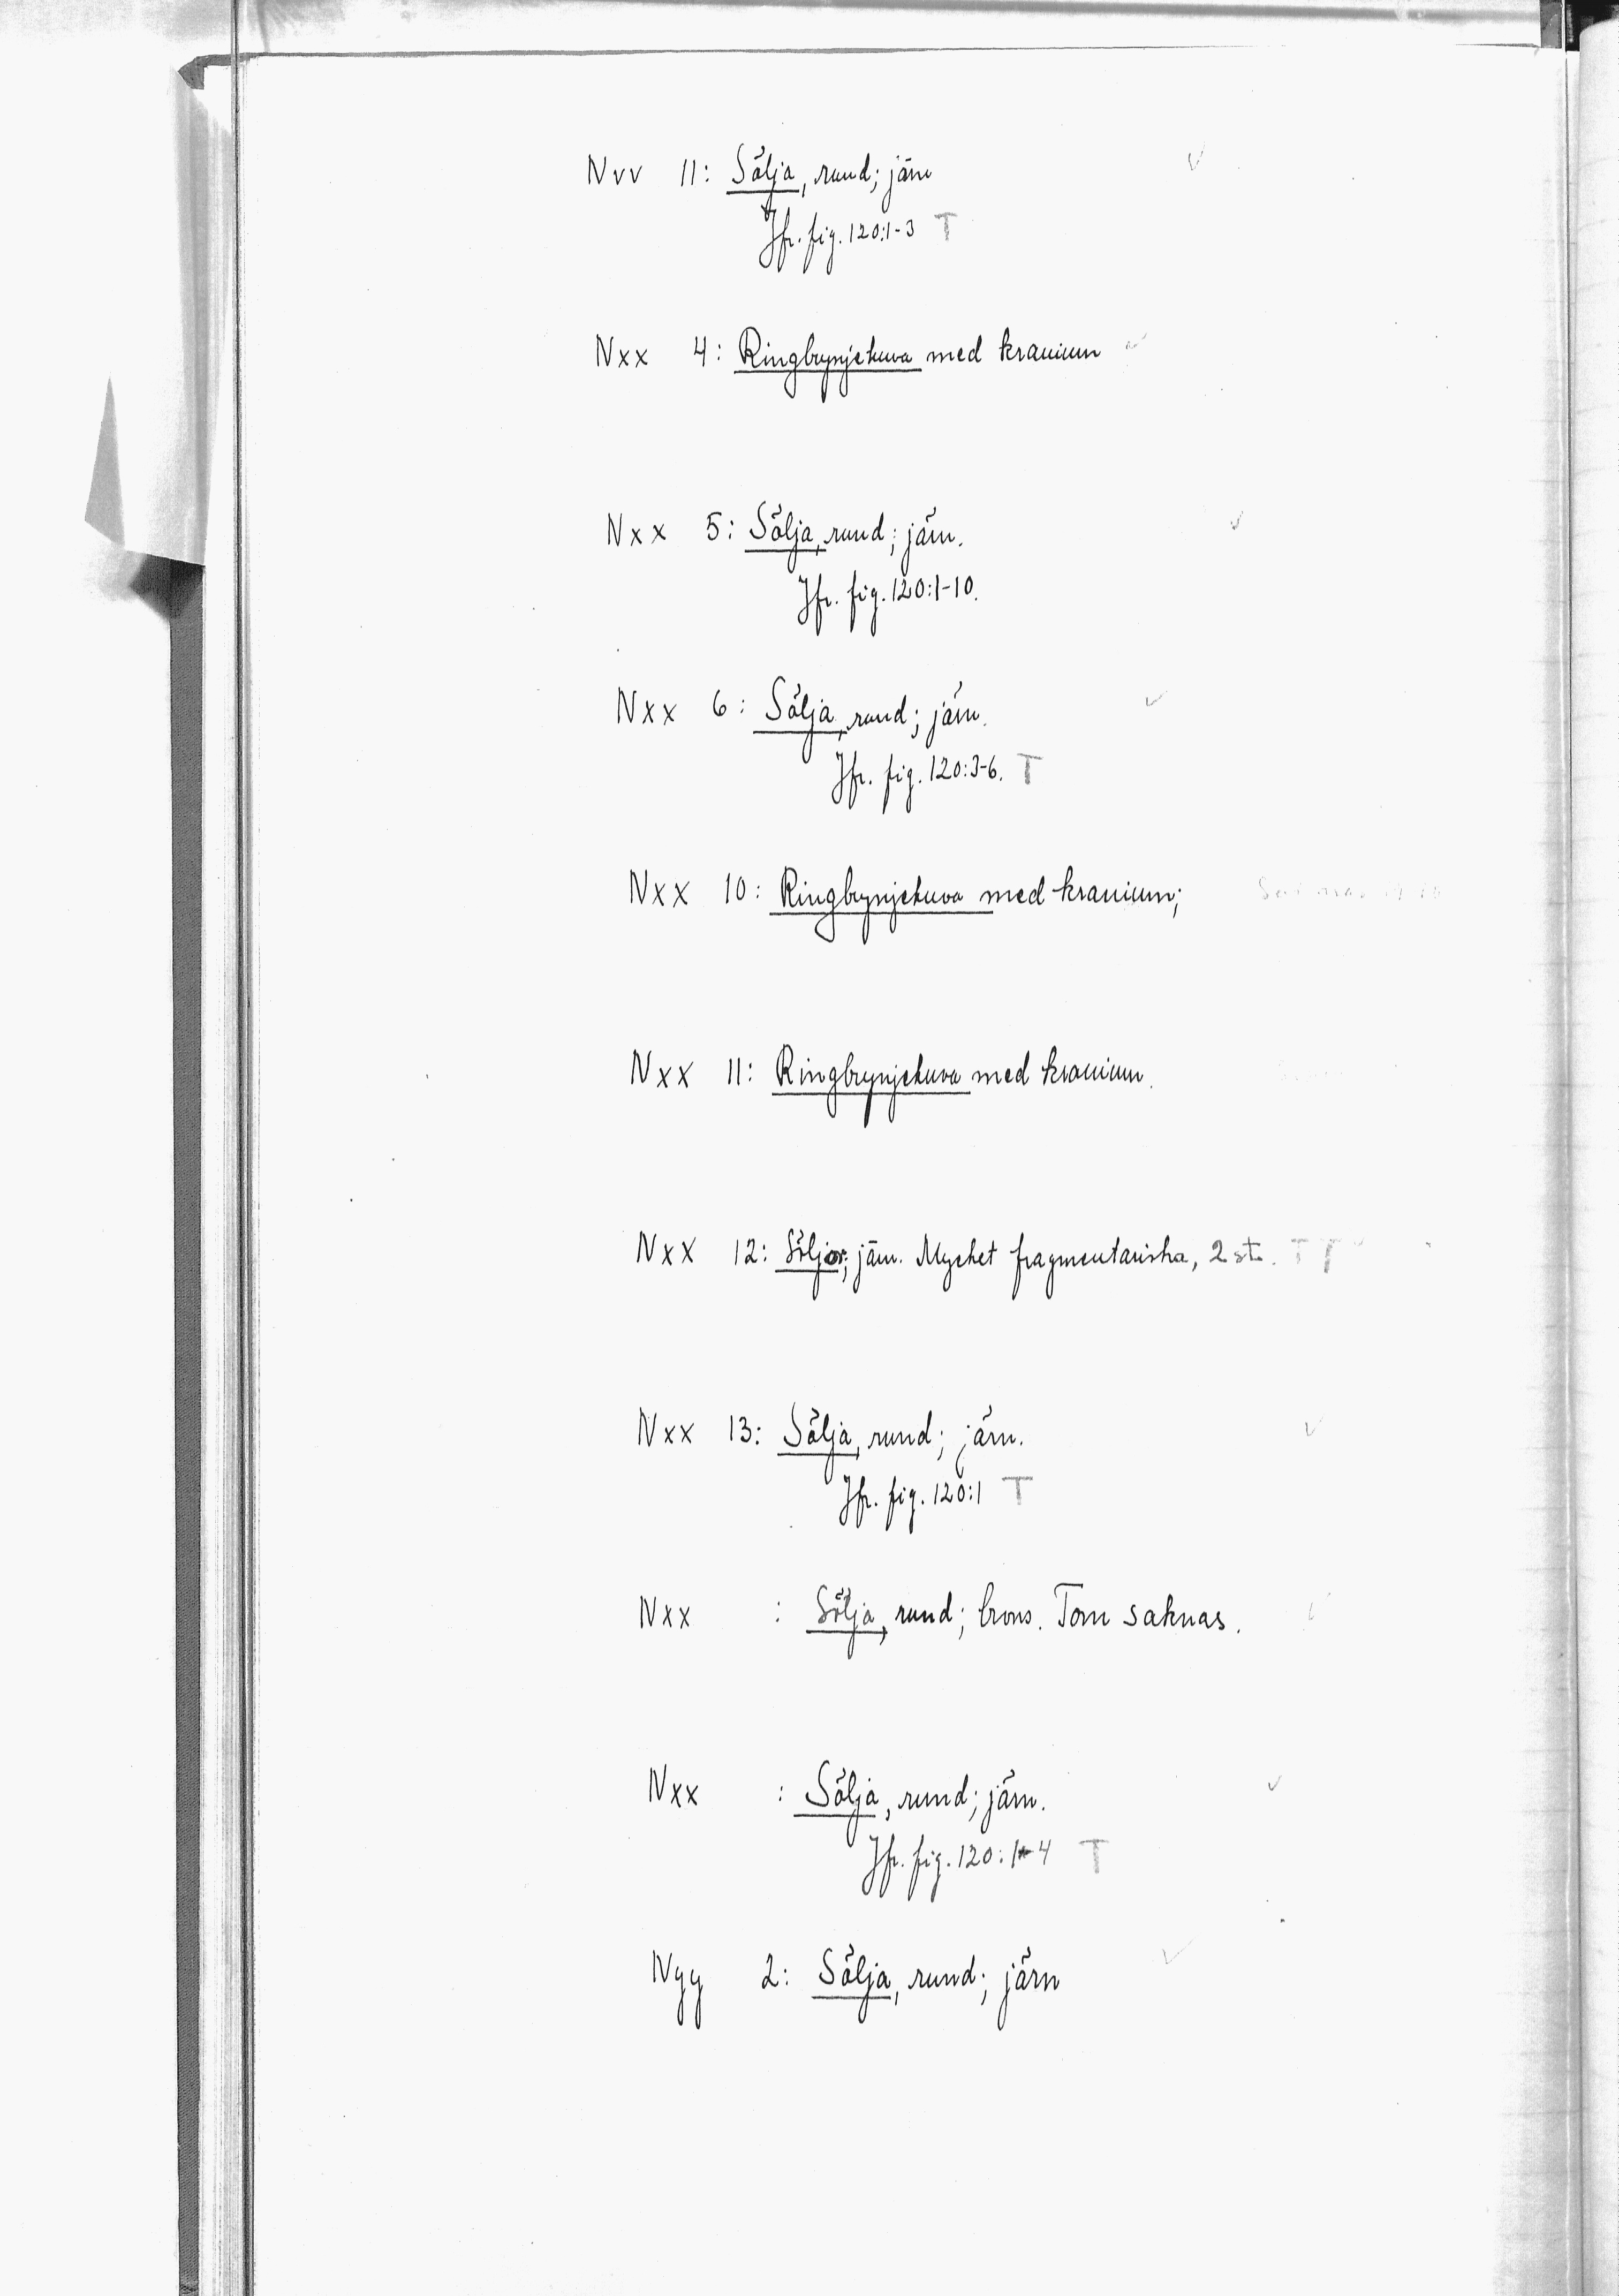 Nvv 11: Sölja, rund; järn
Jfr. fig. 120:1-3 T
Nxx 4: Ringbrynjehuva med kranium
Nxx 5: Sölja, rund; järn.
Jfr. fig. 120:1-10.
Nxx 6: Sölja, rund; järn.
Jfr. fig. 120:3-6. T
Nxx 10: Ringbrynjehuva med kranium;
Nxx 11: Ringbrynjehuva med kranium.
Nxx 12: Söljor; järn. Mycket fragmentariska, 2 st. T T
Nxx 13: Sölja, rund; järn.
Jfr. fig. 120:1 T
Nxx : Sölja, rund; brons. Torn saknas.
Nxx : Sölja, rund; järn.
Jfr. fig. 120:1-4 T
Nyy 2: Sölja, rund; järn